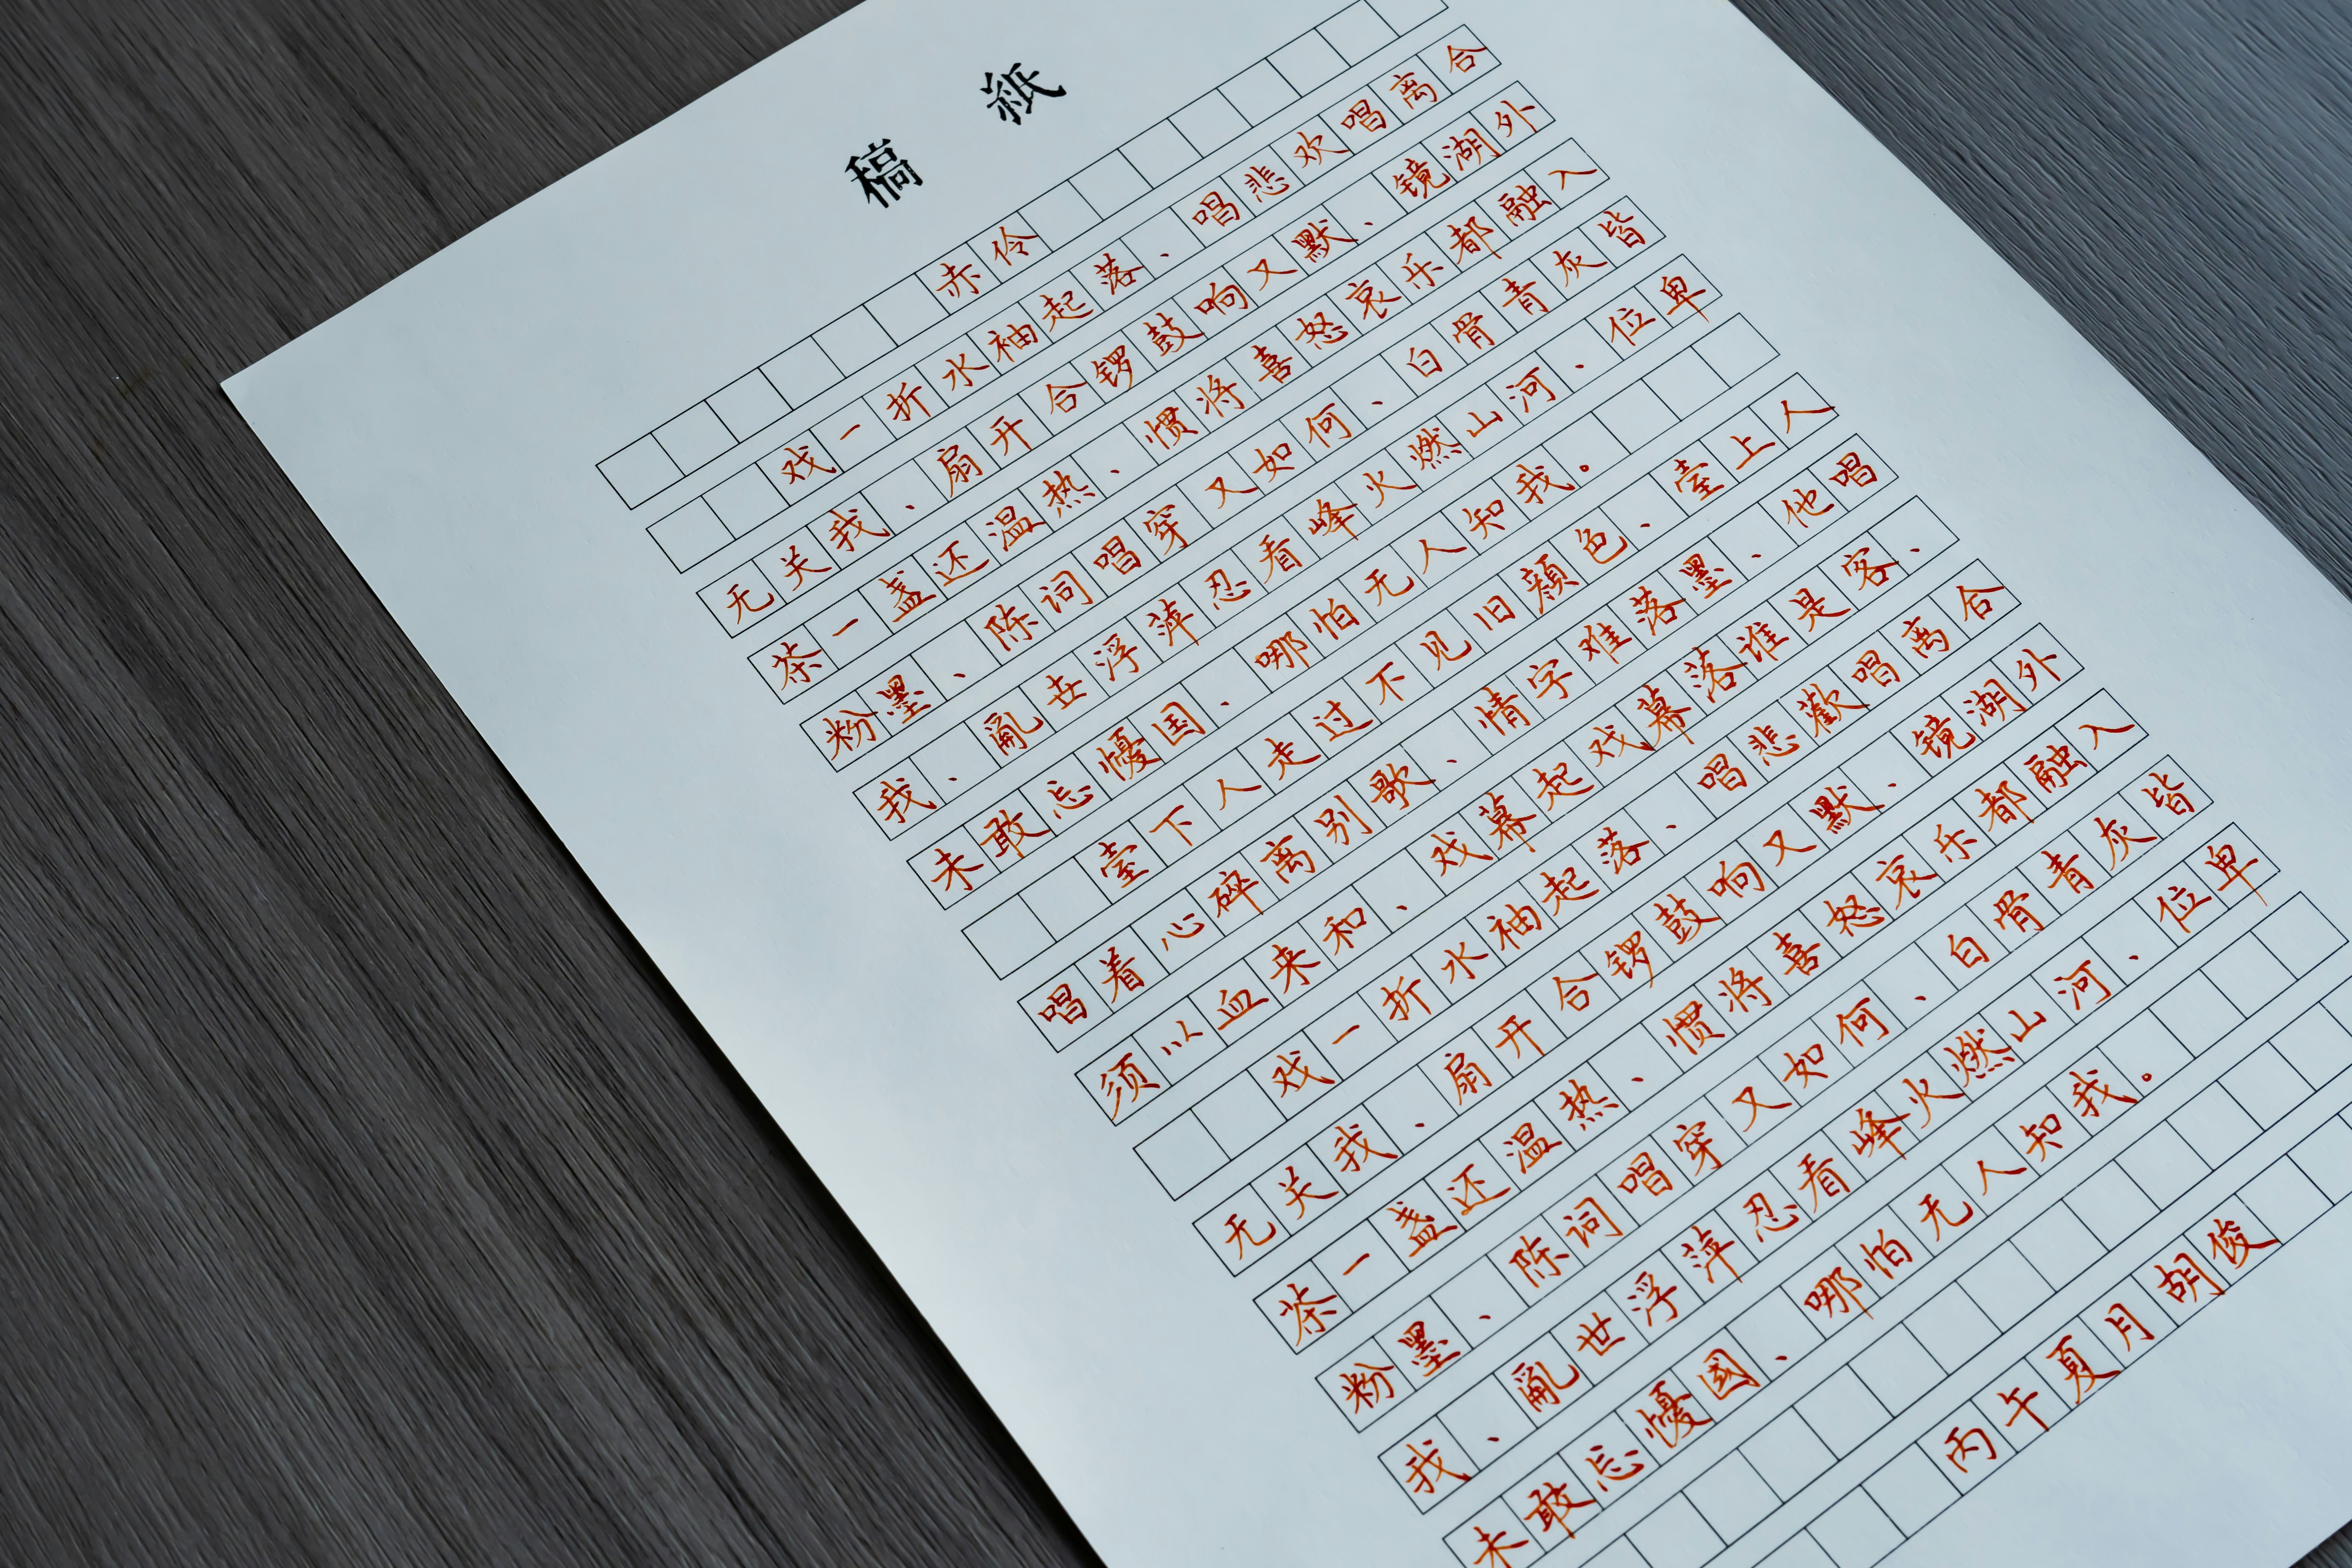 稿 紙
赤伶
戏一折水袖起落、唱悲欢唱离合
无关我、扇开合锣鼓响又默、镜湖外
茶一盏还温热、惯将喜怒哀乐都融入
粉墨、陈词唱穿又如何、白骨青灰皆
我、亂世浮萍忍看峰火燃山河、位卑
未敢忘懮国、哪怕无人知我。
臺下人走过不见旧顏色、臺上人
唱着心碎离别歌、情字难落墨、他唱
须以血来和、戏幕起戏幕落谁是客、
戏一折水袖起落、唱悲歡唱离合
无关我、扇开合锣鼓响又默、镜湖外
茶一盏还温热、惯将喜怒哀乐都融入
粉墨、陈词唱穿又如何、白骨青灰皆
我、亂世浮萍忍看峰火燃山河、位卑
未敢忘懮國、哪怕无人知我。
丙午夏月胡俊